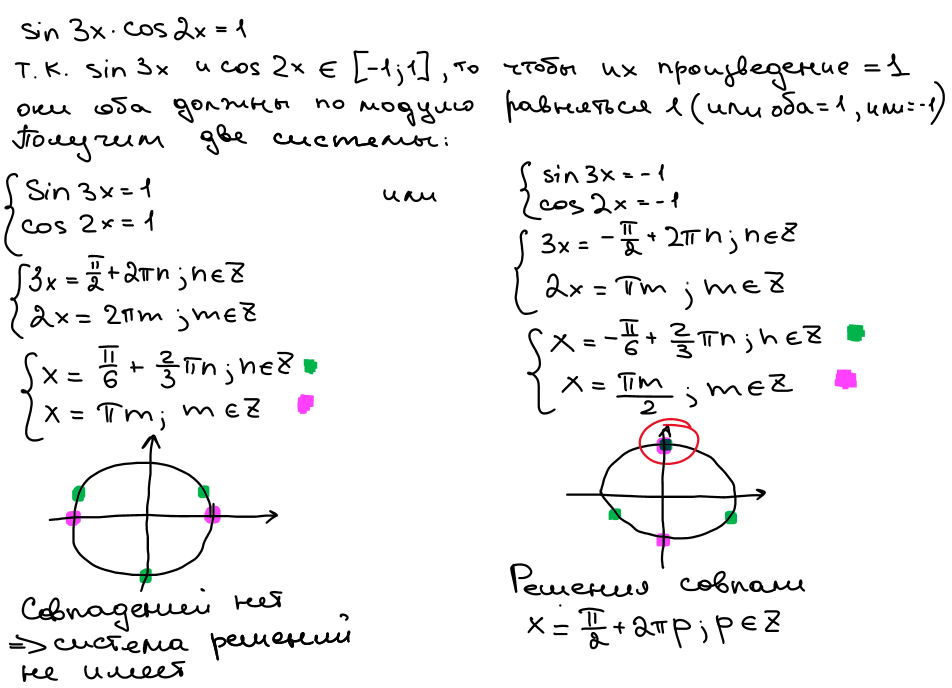 sin 3x · cos 2x = 1
Т.к. sin 3x и cos 2x ∈ [-1; 1], то чтобы их произведение = 1
они оба должны по модулю равняться 1 (или оба = 1, или = -1)
Получим две системы:
{ sin 3x = 1
cos 2x = 1
или
{ sin 3x = -1
cos 2x = -1
{ 3x = π/2 + 2πn; n ∈ Z
2x = 2πm; m ∈ Z
{ 3x = -π/2 + 2πn; n ∈ Z
2x = πm; m ∈ Z
{ x = π/6 + 2/3 πn; n ∈ Z
x = πm; m ∈ Z
{ x = -π/6 + 2/3 πn; n ∈ Z
x = πm/2; m ∈ Z
Совпадений нет
=> система решений
не имеет
Решения совпали
x = π/2 + 2πp; p ∈ Z